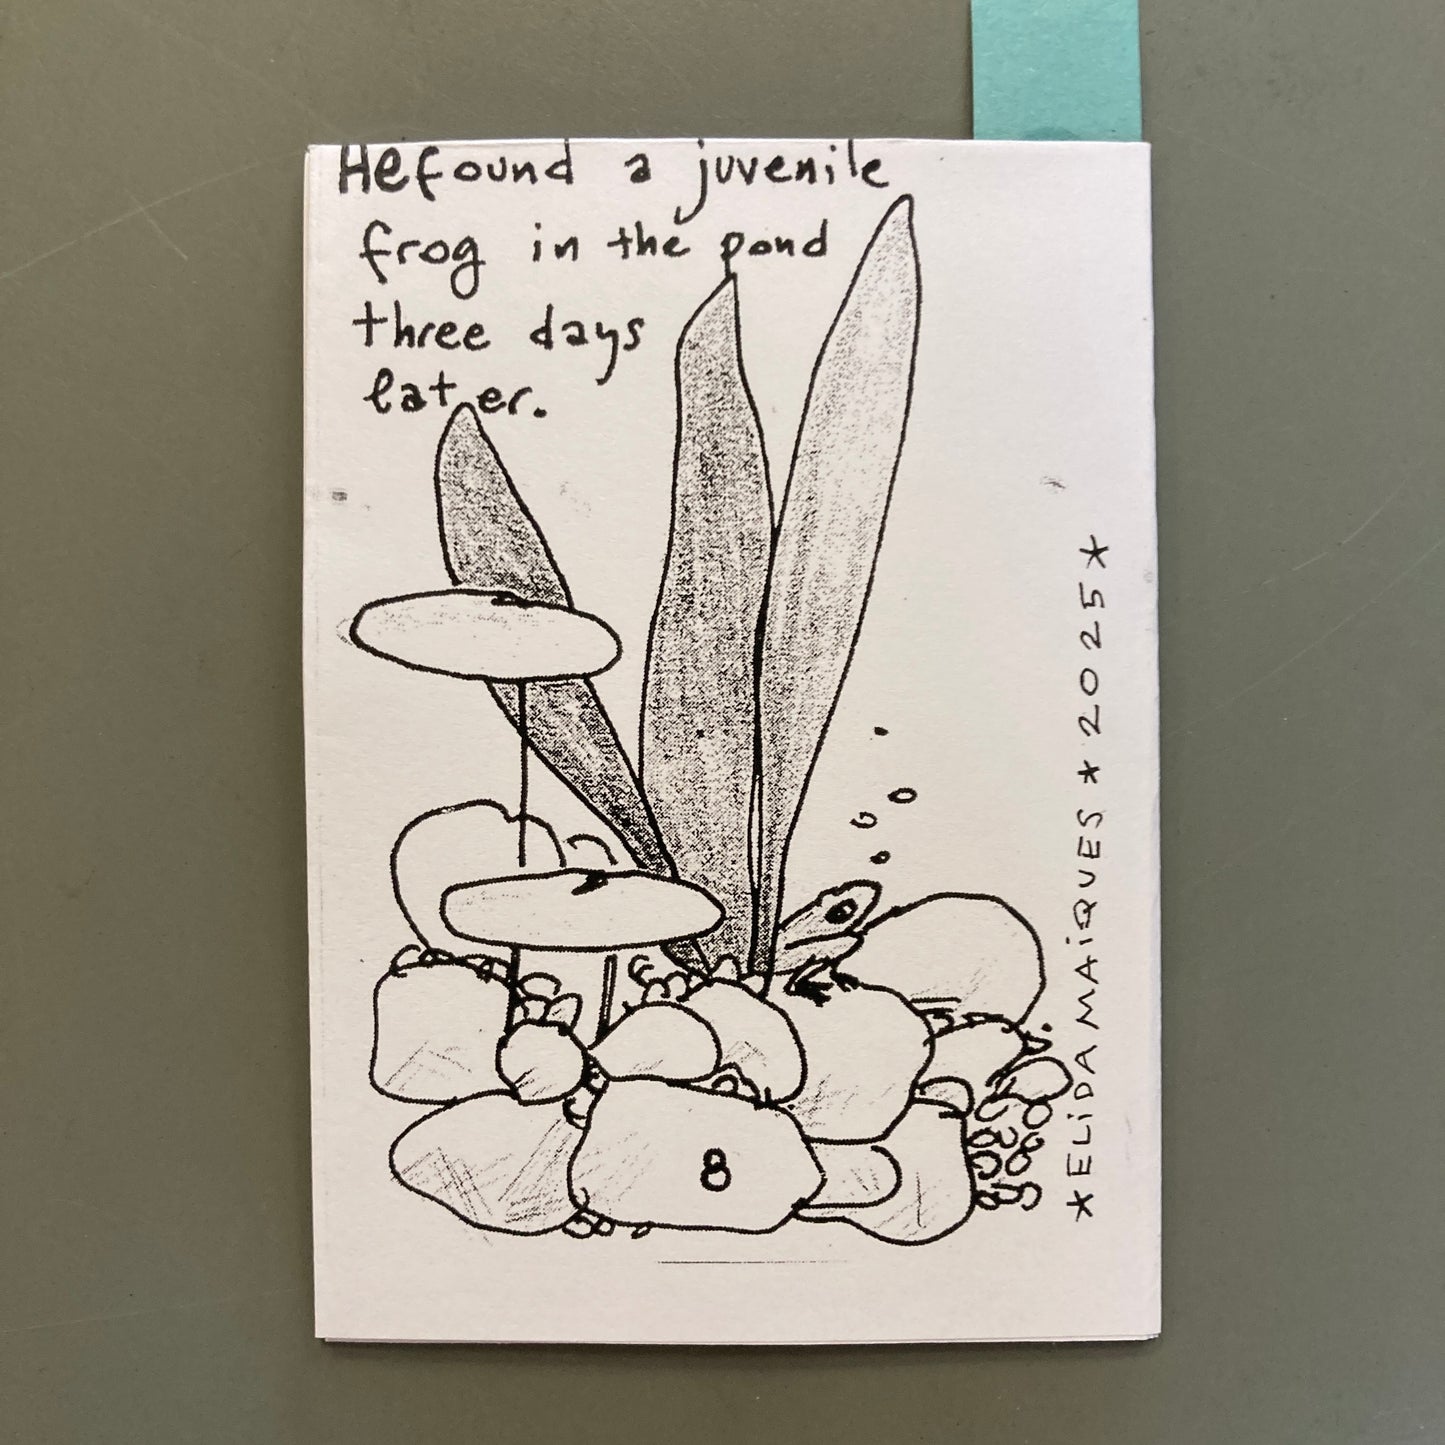 He found a juvenile
frog in the pond
three days
later.
8
*ELiDA MAiQUES * 2025*